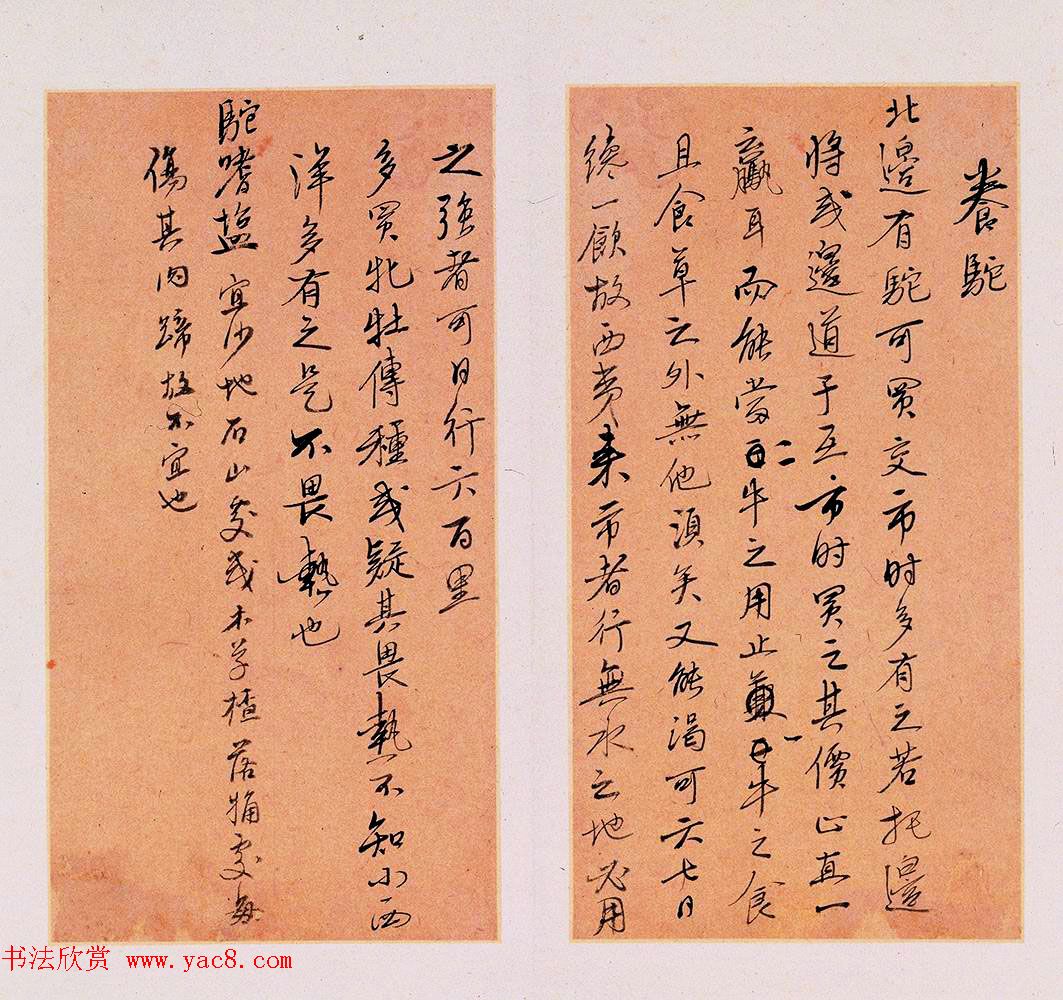 養駝
北邊有駝可買交市时多有之若托邊
將或邊道于互市时買之其價止直一
羸耳而能當二牛之用止一牛之食
且食草之外無他須矣又能渴可六七日
纔一飲故西夷来市者行無水之地必用
之强者可日行六百里
多買牝牡傳種或疑其畏熱不知小西
洋多有之是不畏熱也
駝嗜盐宜沙地石山處或木子楂落處每
傷其肉蹄故不宜也
书法欣赏 www.yac8.com